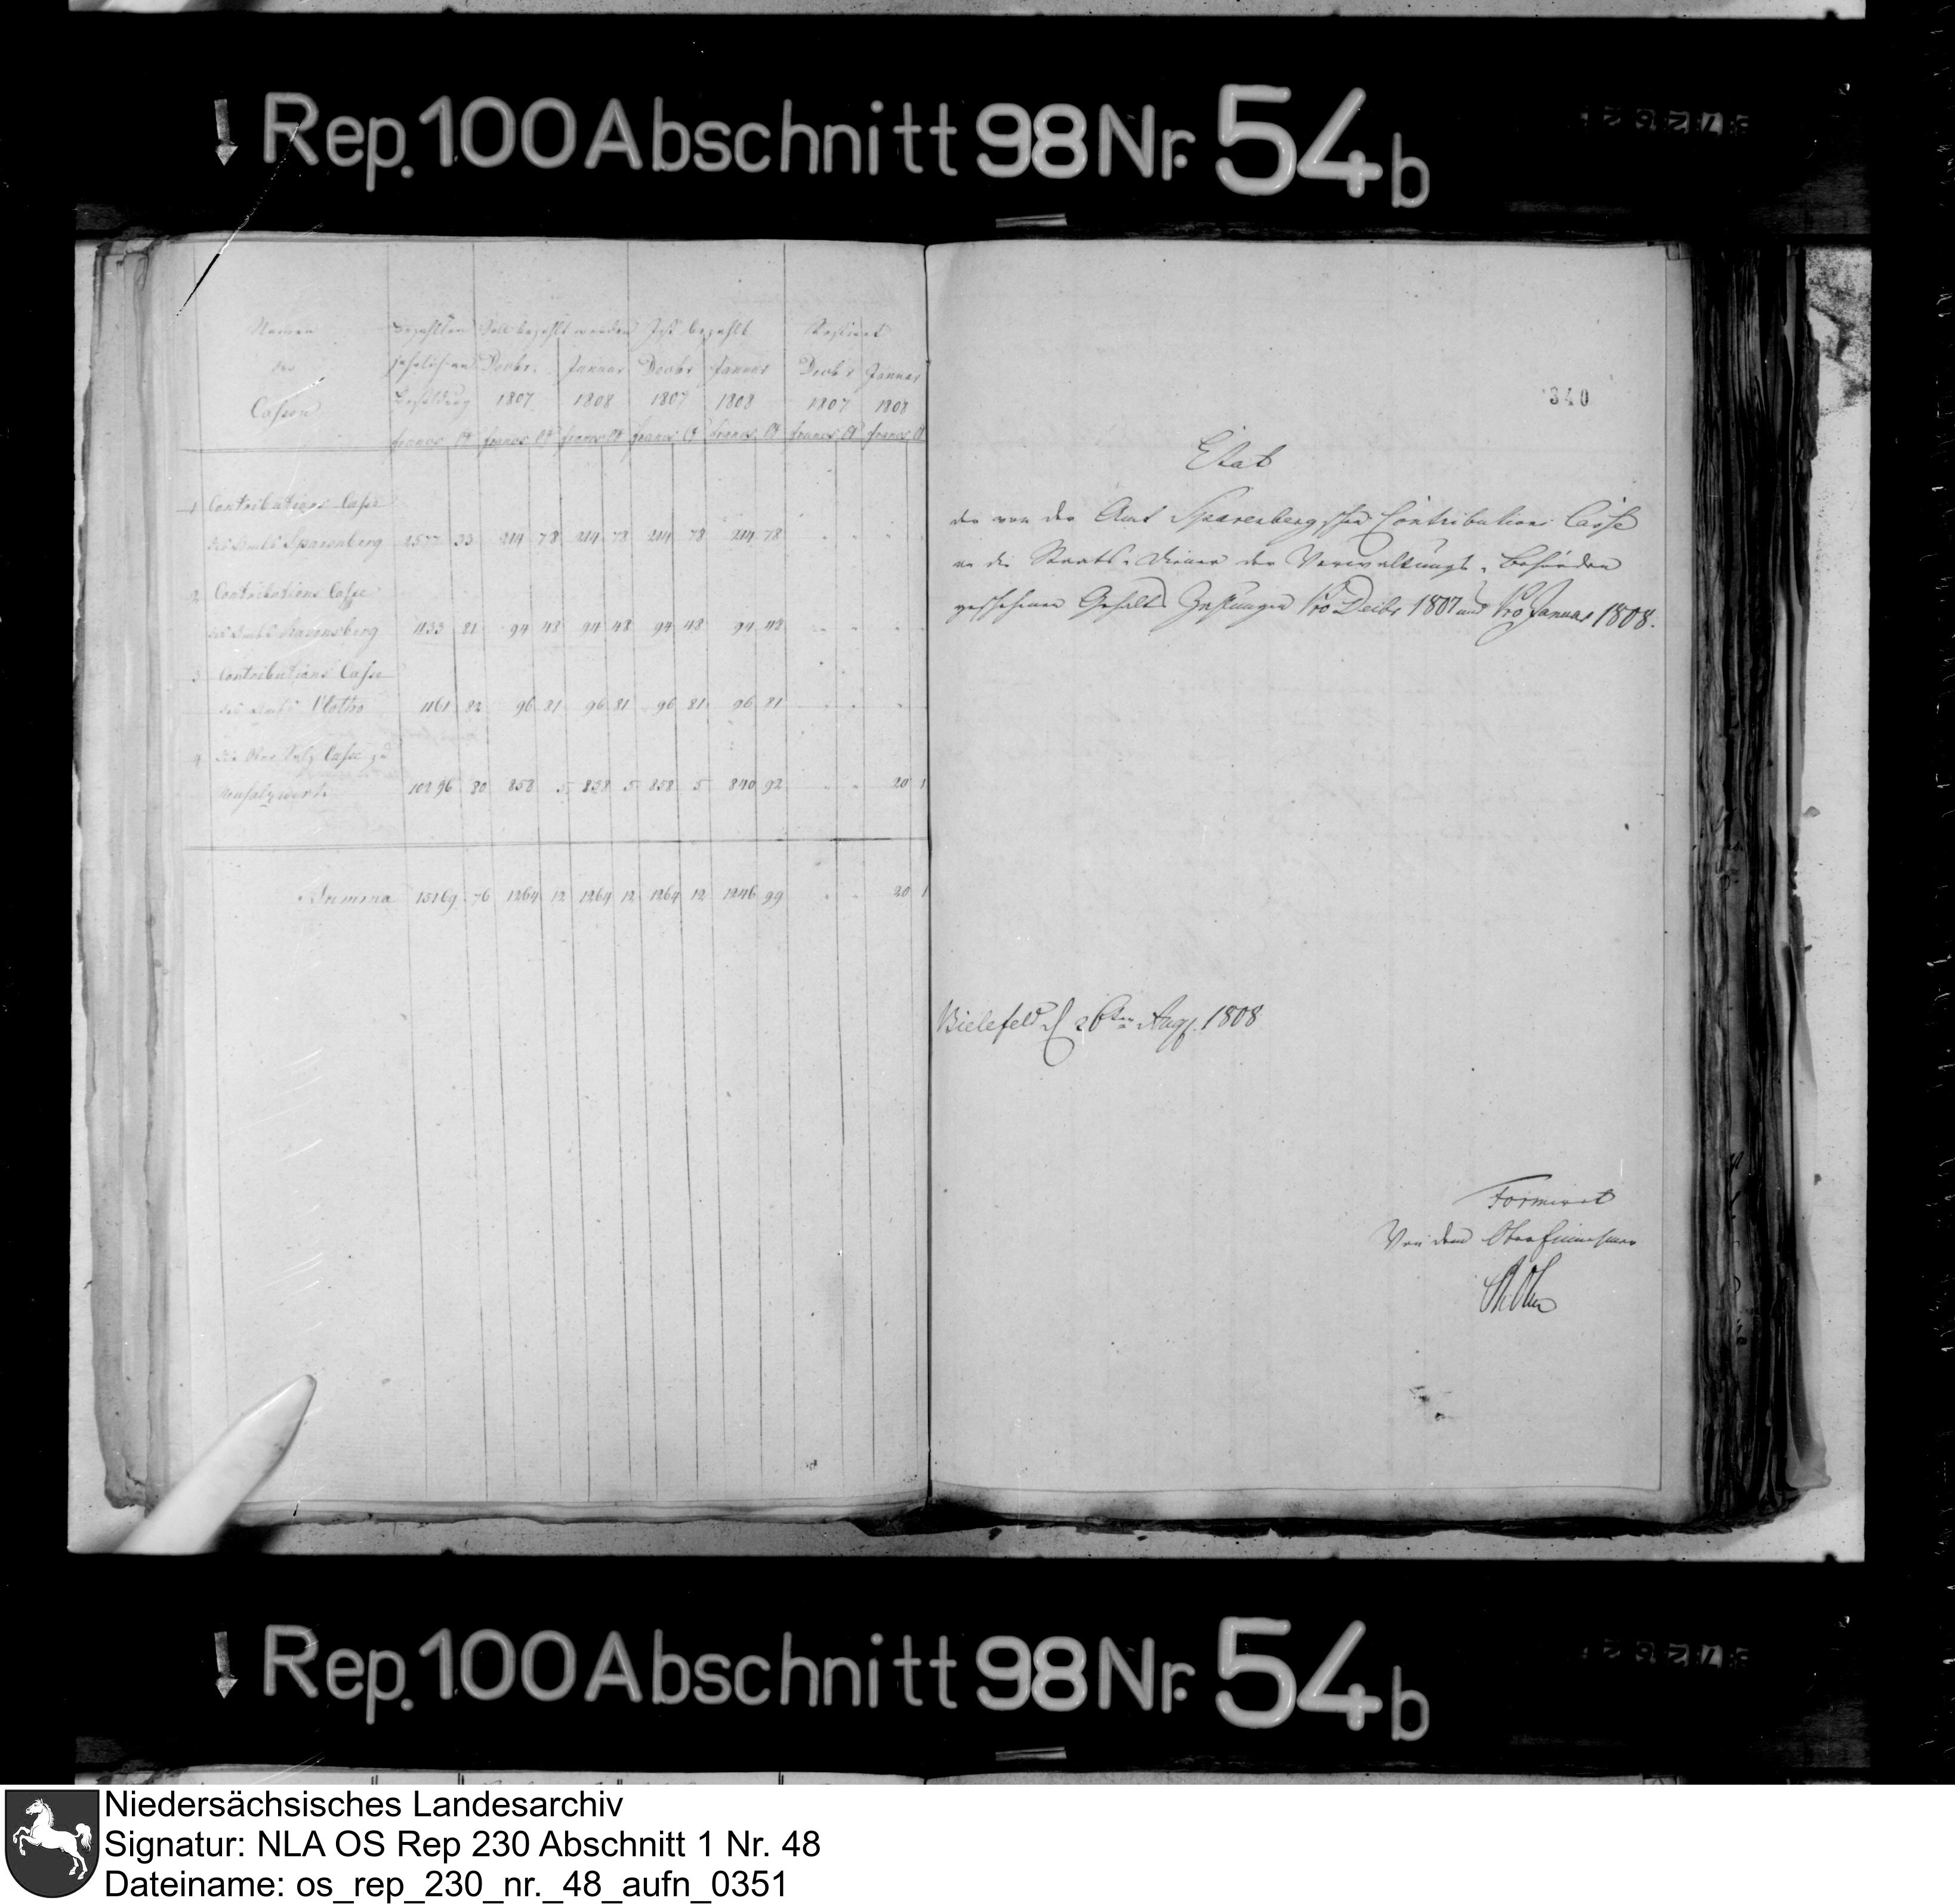 Rep. 100 Abschnitt 98 Nr. 54b
Namen der Cassen
bezahlten jährlichen Besoldung
Soll bezahlt werden
Ist bezahlt
Restiret
Decbr. 1807 Januar 1808 Decbr 1807 Januar 1808 Decb'r 1807 Januar 1808
francs Ct francs Ct francs Ct francs Ct francs Ct francs Ct francs Ct
1 Contributions Casse
des Amts Sparenberg 2577 33 214 78 214 78 214 78 214 78
2 Contributions Casse
des Amts Ravensberg 1133 81 94 48 94 48 94 48 94 48
3 Contributions Casse
des Amts Vlotho 1161 82 96 81 96 81 96 81 96 81
4 die Ober Salz Casse zu
Neusalzwerk 10296 80 858 5 858 5 858 5 840 92 20 1
Summa 15169 76 1264 12 1264 12 1264 12 1246 99 20 1
340
Etat
der von der Amt Sparenbergschen Contributions Casse
an die Staats-Diener der Verwaltungs-Behörden
geschehenen Gehalts Zahlungen Pro Decbr 1807 und Pro Januar 1808.
Bielefeld d 26ten Aug. 1808
Formiret
Von dem Ober Einnehmer
Rep. 100 Abschnitt 98 Nr. 54b
Niedersächsisches Landesarchiv
Signatur: NLA OS Rep 230 Abschnitt 1 Nr. 48
Dateiname: os_rep_230_nr._48_aufn_0351